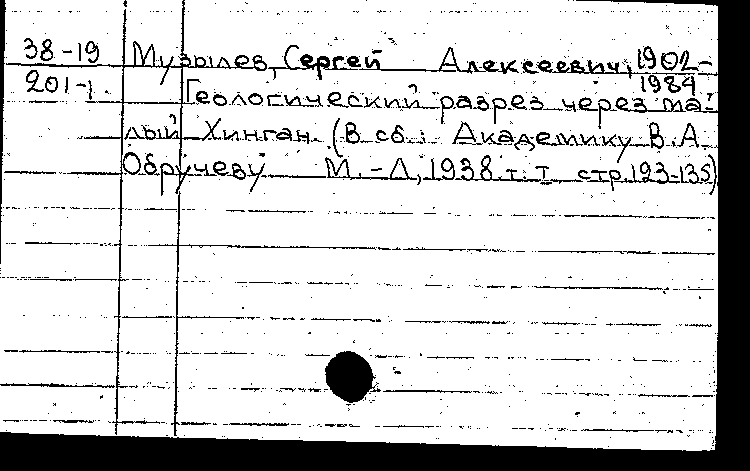 38-19 Музылев, Сергей Алексеевич, 1902-
201-1. 1984
Геологический разрез через ма-
лый Хинган. (В сб.: Академику В.А.
Обручеву М.-Л, 1938. т. I стр. 123-135)